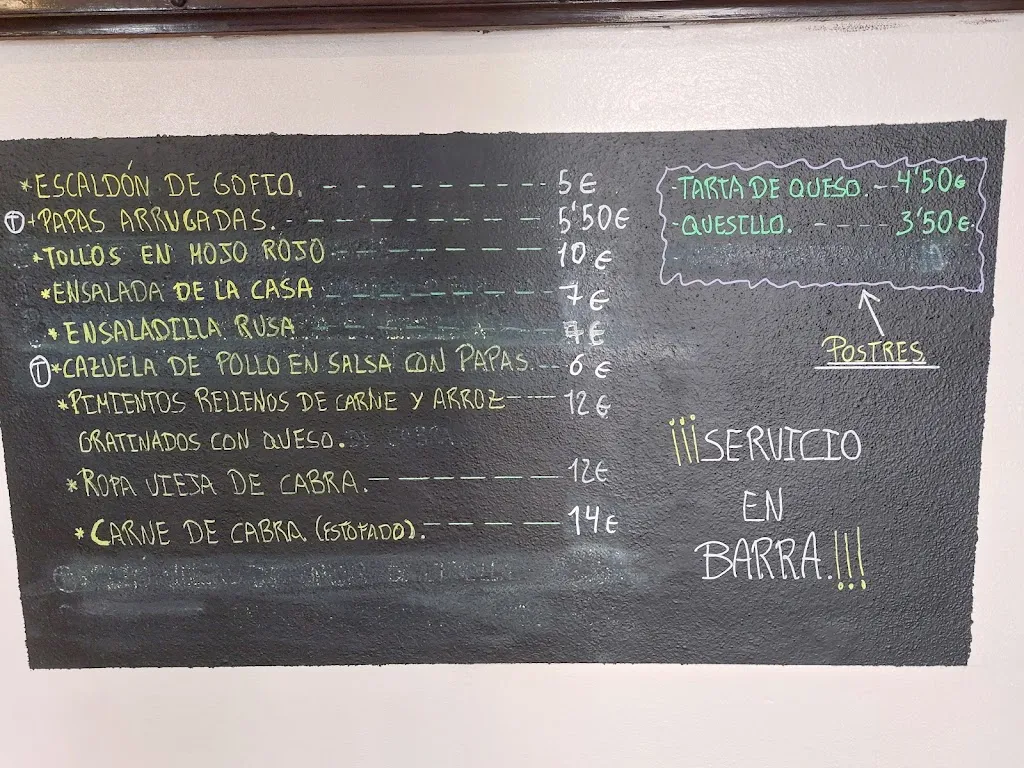 *ESCALDÓN DE GOFIO. - - - - - - - - 5 €
Ⓣ *PAPAS ARRUGADAS. - - - - - - - - - 5'50€
*TOLLOS EN MOJO ROJO - - - - - - - - 10 €
*ENSALADA DE LA CASA - - - - - - - - 7 €
*ENSALADILLA RUSA - - - - - - - - 7 €
Ⓣ *CAZUELA DE POLLO EN SALSA CON PAPAS. - - 6 €
*PIMIENTOS RELLENOS DE CARNE Y ARROZ - - - 12 €
GRATINADOS CON QUESO.
*ROPA VIEJA DE CABRA. - - - - - - - - - 12€
*CARNE DE CABRA (ESTOFADO). - - - - - 14 €
-TARTA DE QUESO. - - 4'50€
-QUESILLO. - - - - 3'50€.
POSTRES
¡¡¡SERVICIO
EN
BARRA.!!!